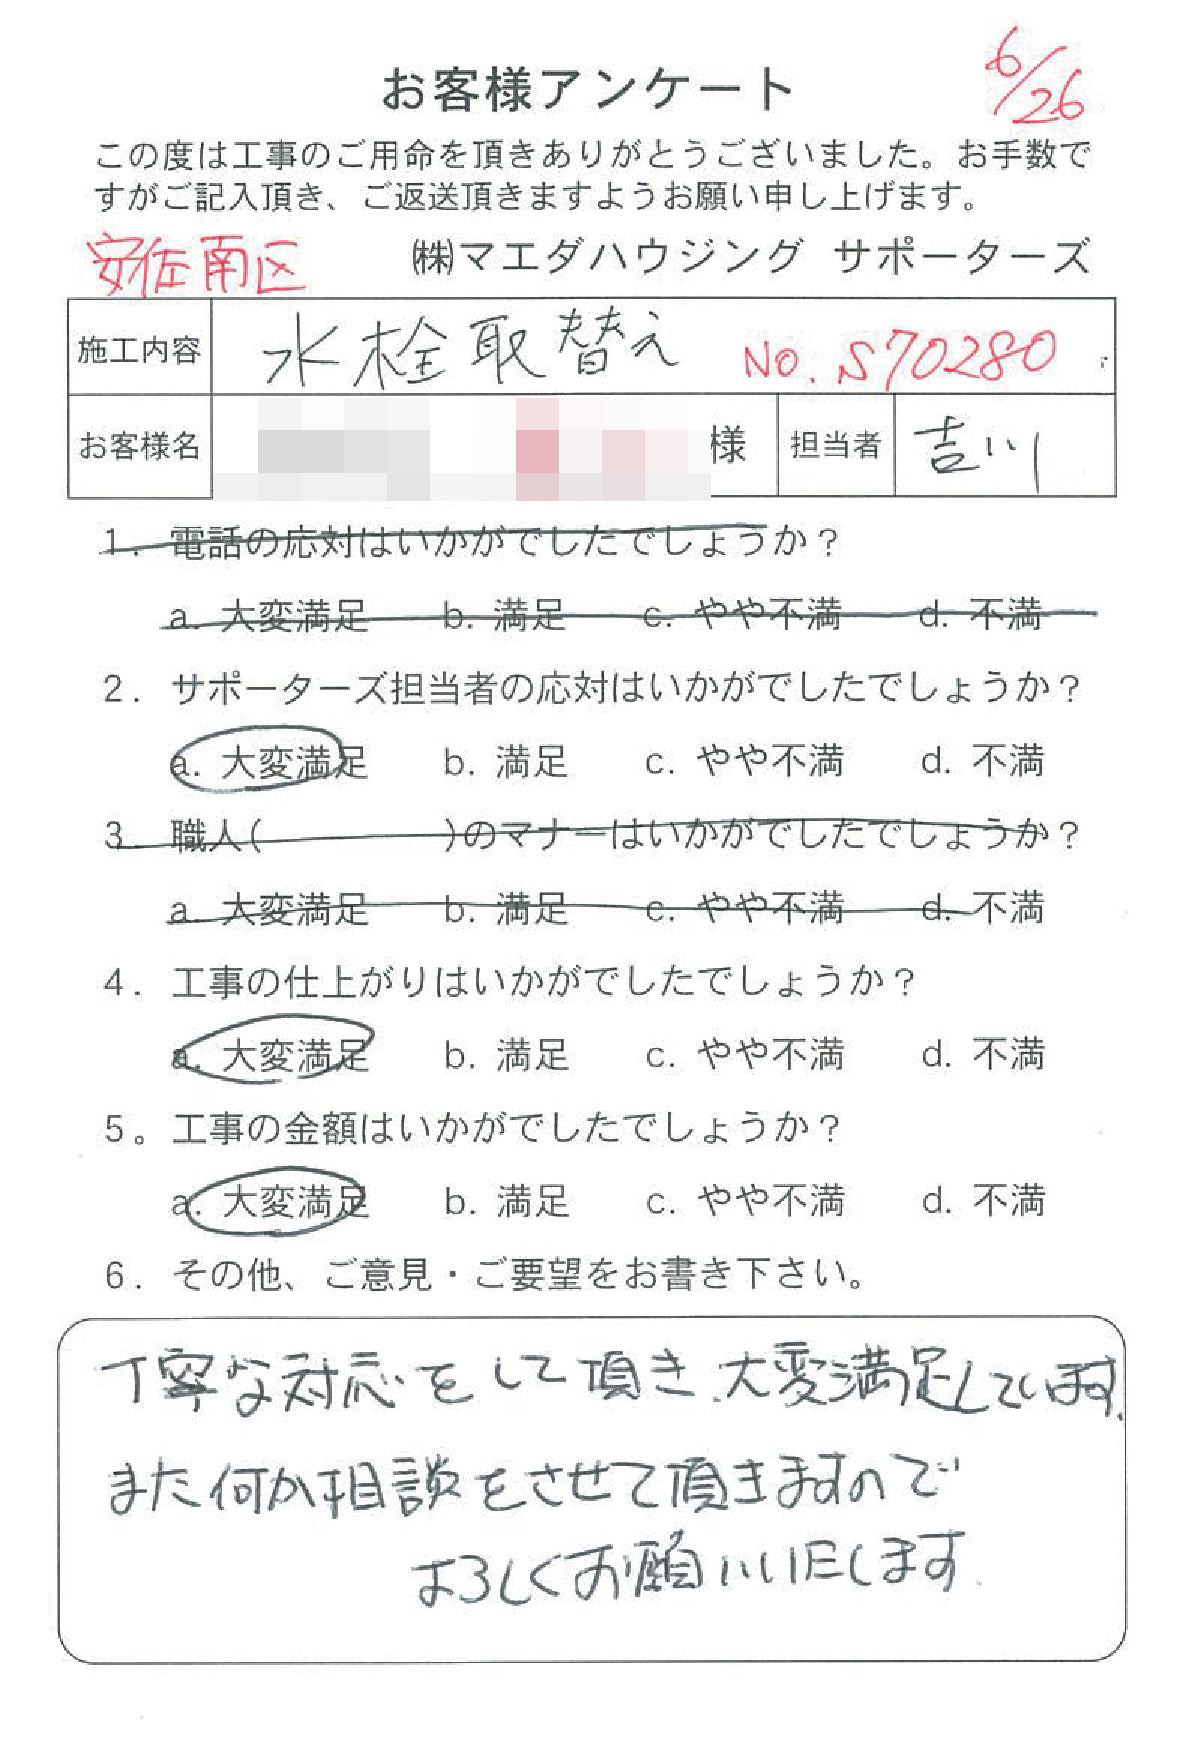 6/26
お客様アンケート
この度は工事のご用命を頂きありがとうございました。お手数で
すがご記入頂き、ご返送頂きますようお願い申し上げます。
安佐南区 ㈱マエダハウジング サポーターズ
施工内容 水栓取替え No. S70280
お客様名 様 担当者 吉川
1. 電話の応対はいかがでしたでしょうか？
a. 大変満足 b. 満足 c. やや不満 d. 不満
2. サポーターズ担当者の応対はいかがでしたでしょうか？
a. 大変満足 b. 満足 c. やや不満 d. 不満
3. 職人( )のマナーはいかがでしたでしょうか？
a. 大変満足 b. 満足 c. やや不満 d. 不満
4. 工事の仕上がりはいかがでしたでしょうか？
a. 大変満足 b. 満足 c. やや不満 d. 不満
5。工事の金額はいかがでしたでしょうか？
a. 大変満足 b. 満足 c. やや不満 d. 不満
6. その他、ご意見・ご要望をお書き下さい。
丁寧な対応をして頂き、大変満足しています。
また何か相談をさせて頂きますので
よろしくお願いいたします